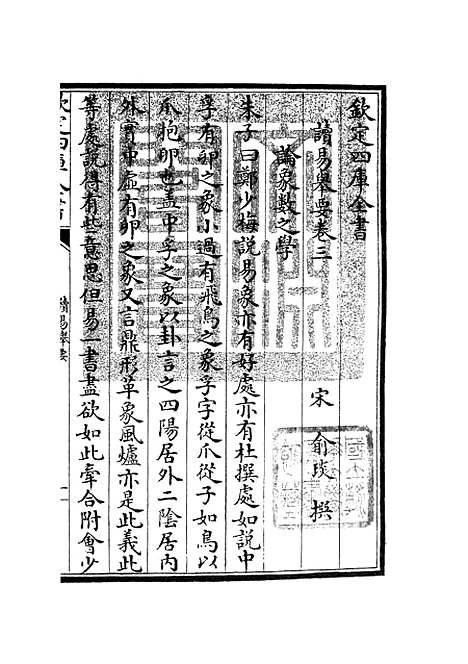 欽定四庫全書
讀易舉要卷三
宋 俞琰 撰
論象數之學
朱子曰鄭少梅說易象亦有好處亦有杜撰處如說中
孚有卵之象小過有飛鳥之象孚字從爪從子如鳥以
爪抱卵也蓋中孚之象以卦言之四陽居外二陰居内
外實中虛有卵之象又言鼎形革象風爐亦是此義此
等處說得有些意思但易一書盡欲如此牽合附會少
欽定四庫全書
讀易舉要